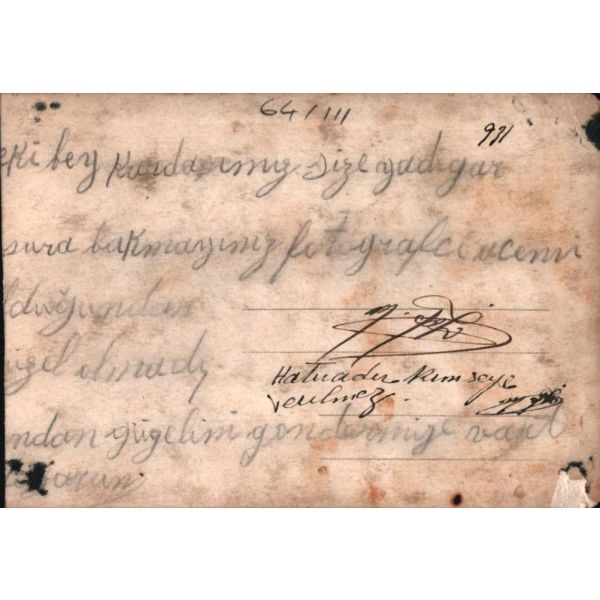 64/III
931
eki bey kardaşımız size yadigar
sura bakmayınız fotografci acemi
lduğundan
üzel olmady
ndan güzelini göndermiye vakit
Hatıradır kimseye
verilmez.